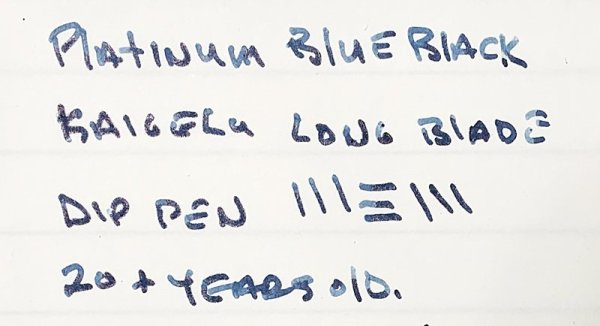 Platinum Blue Black
Kaigelu Long Blade
Dip Pen ||| ☰ |||
20 + years old.